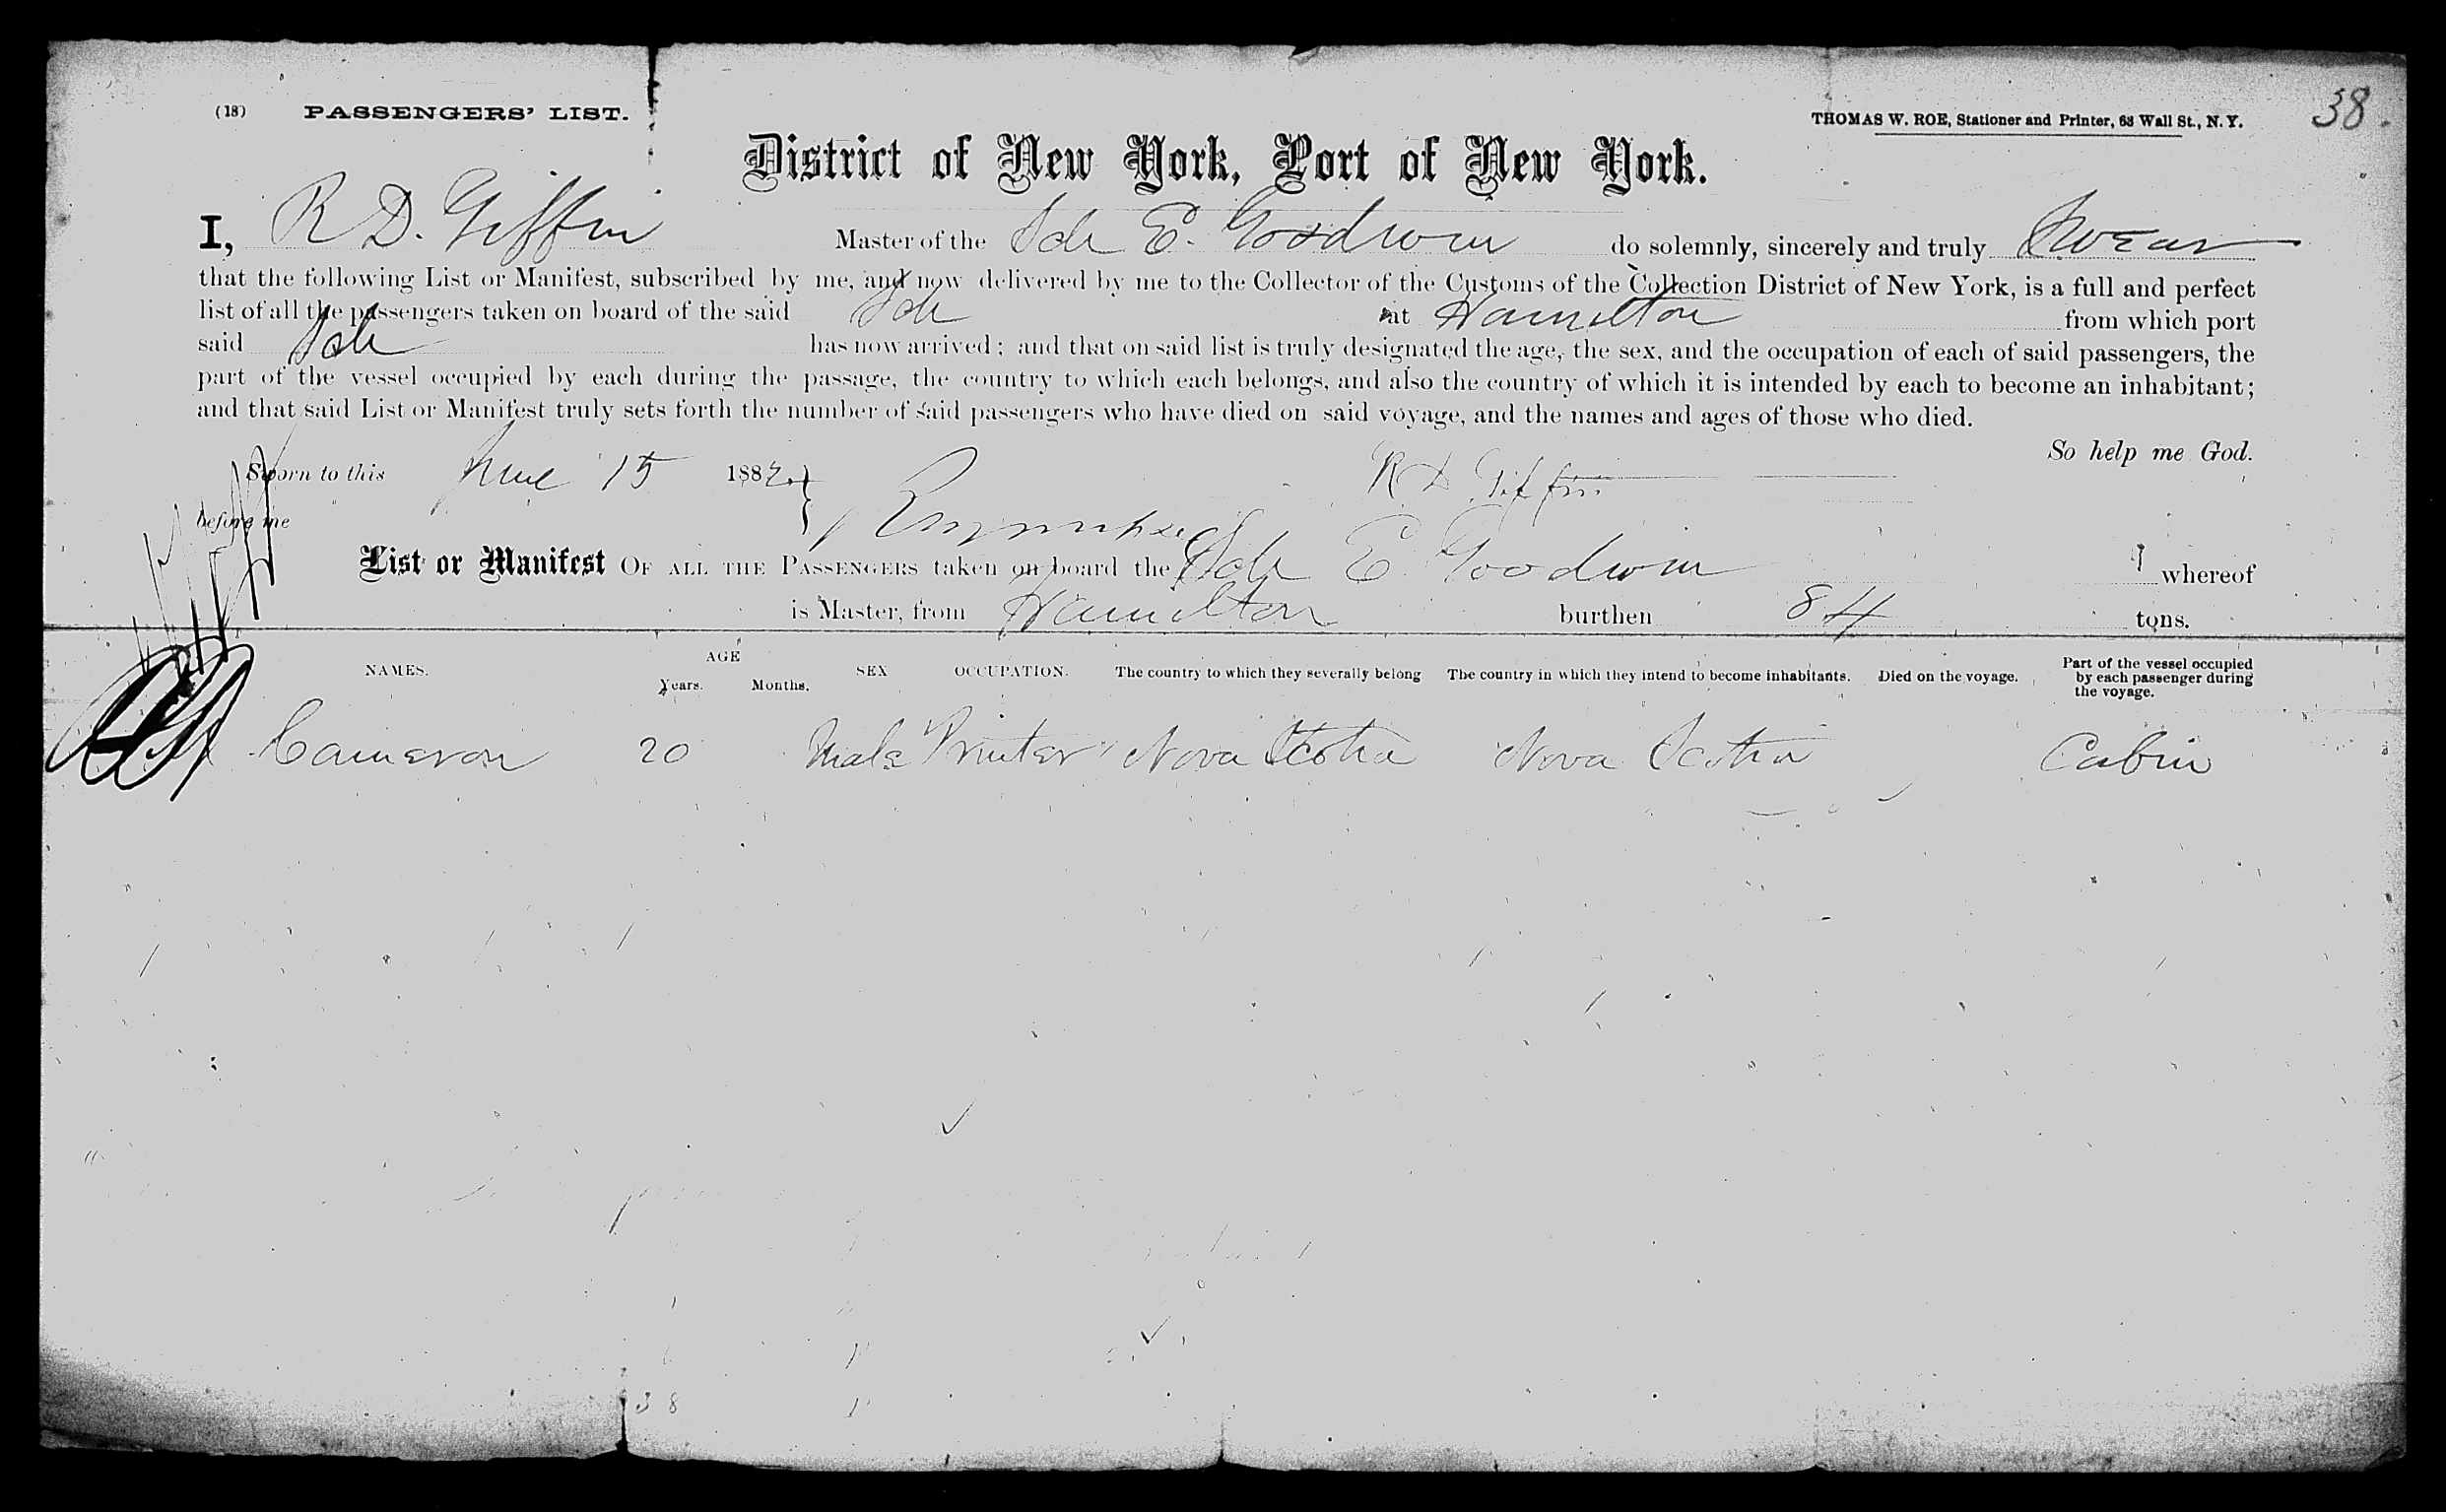 (18) PASSENGERS' LIST.
THOMAS W. ROE, Stationer and Printer, 63 Wall St., N. Y.
38.
District of New York, Port of New York.
I, R D. Giffin Master of the Sch E. Goodwin do solemnly, sincerely and truly Swear
that the following List or Manifest, subscribed by me, and now delivered by me to the Collector of the Customs of the Collection District of New York, is a full and perfect
list of all the passengers taken on board of the said Sch at Hamilton from which port
said Sch has now arrived; and that on said list is truly designated the age, the sex, and the occupation of each of said passengers, the
part of the vessel occupied by each during the passage, the country to which each belongs, and also the country of which it is intended by each to become an inhabitant;
and that said List or Manifest truly sets forth the number of said passengers who have died on said voyage, and the names and ages of those who died.
So help me God.
Sworn to this June 15 1882. R D Giffin
before me
List or Manifest OF ALL THE PASSENGERS taken on board the Sch E Goodwin whereof
is Master, from Hamilton burthen 84 tons.
NAMES. AGE Years. Months. SEX OCCUPATION. The country to which they severally belong The country in which they intend to become inhabitants. Died on the voyage. Part of the vessel occupied by each passenger during the voyage.
Cameron 20 Male Printer Nova Scotia Nova Scotia Cabin
38